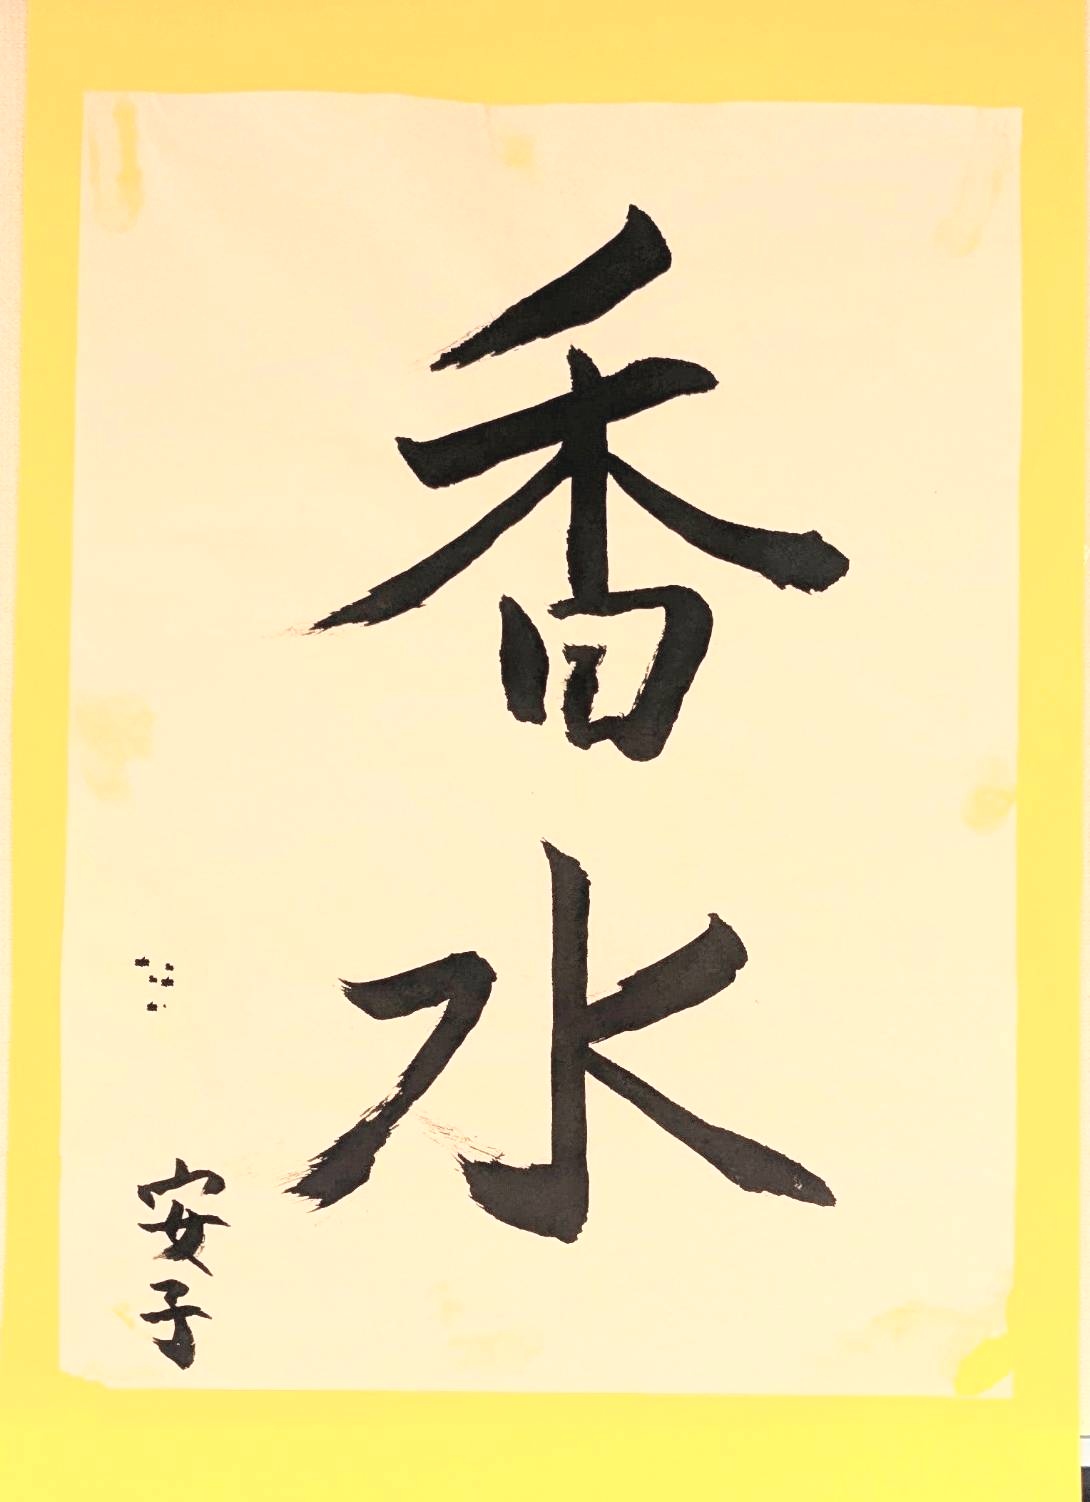 香水
安子